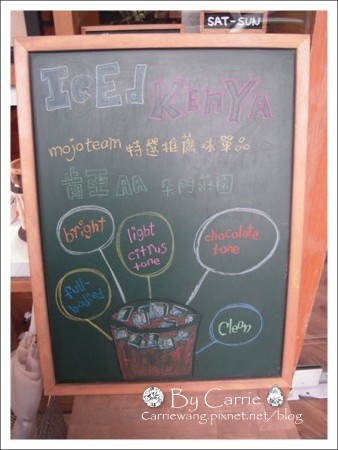 SAT-SUN
IcEd
KENYA
mojoteam 特選推薦冰單品
肯亞 AA 莊園
bright
light
citrus
tone
chocolate
tone
full-
bodied
Clean
By Carrie
Carriewang.pixnet.net/blog